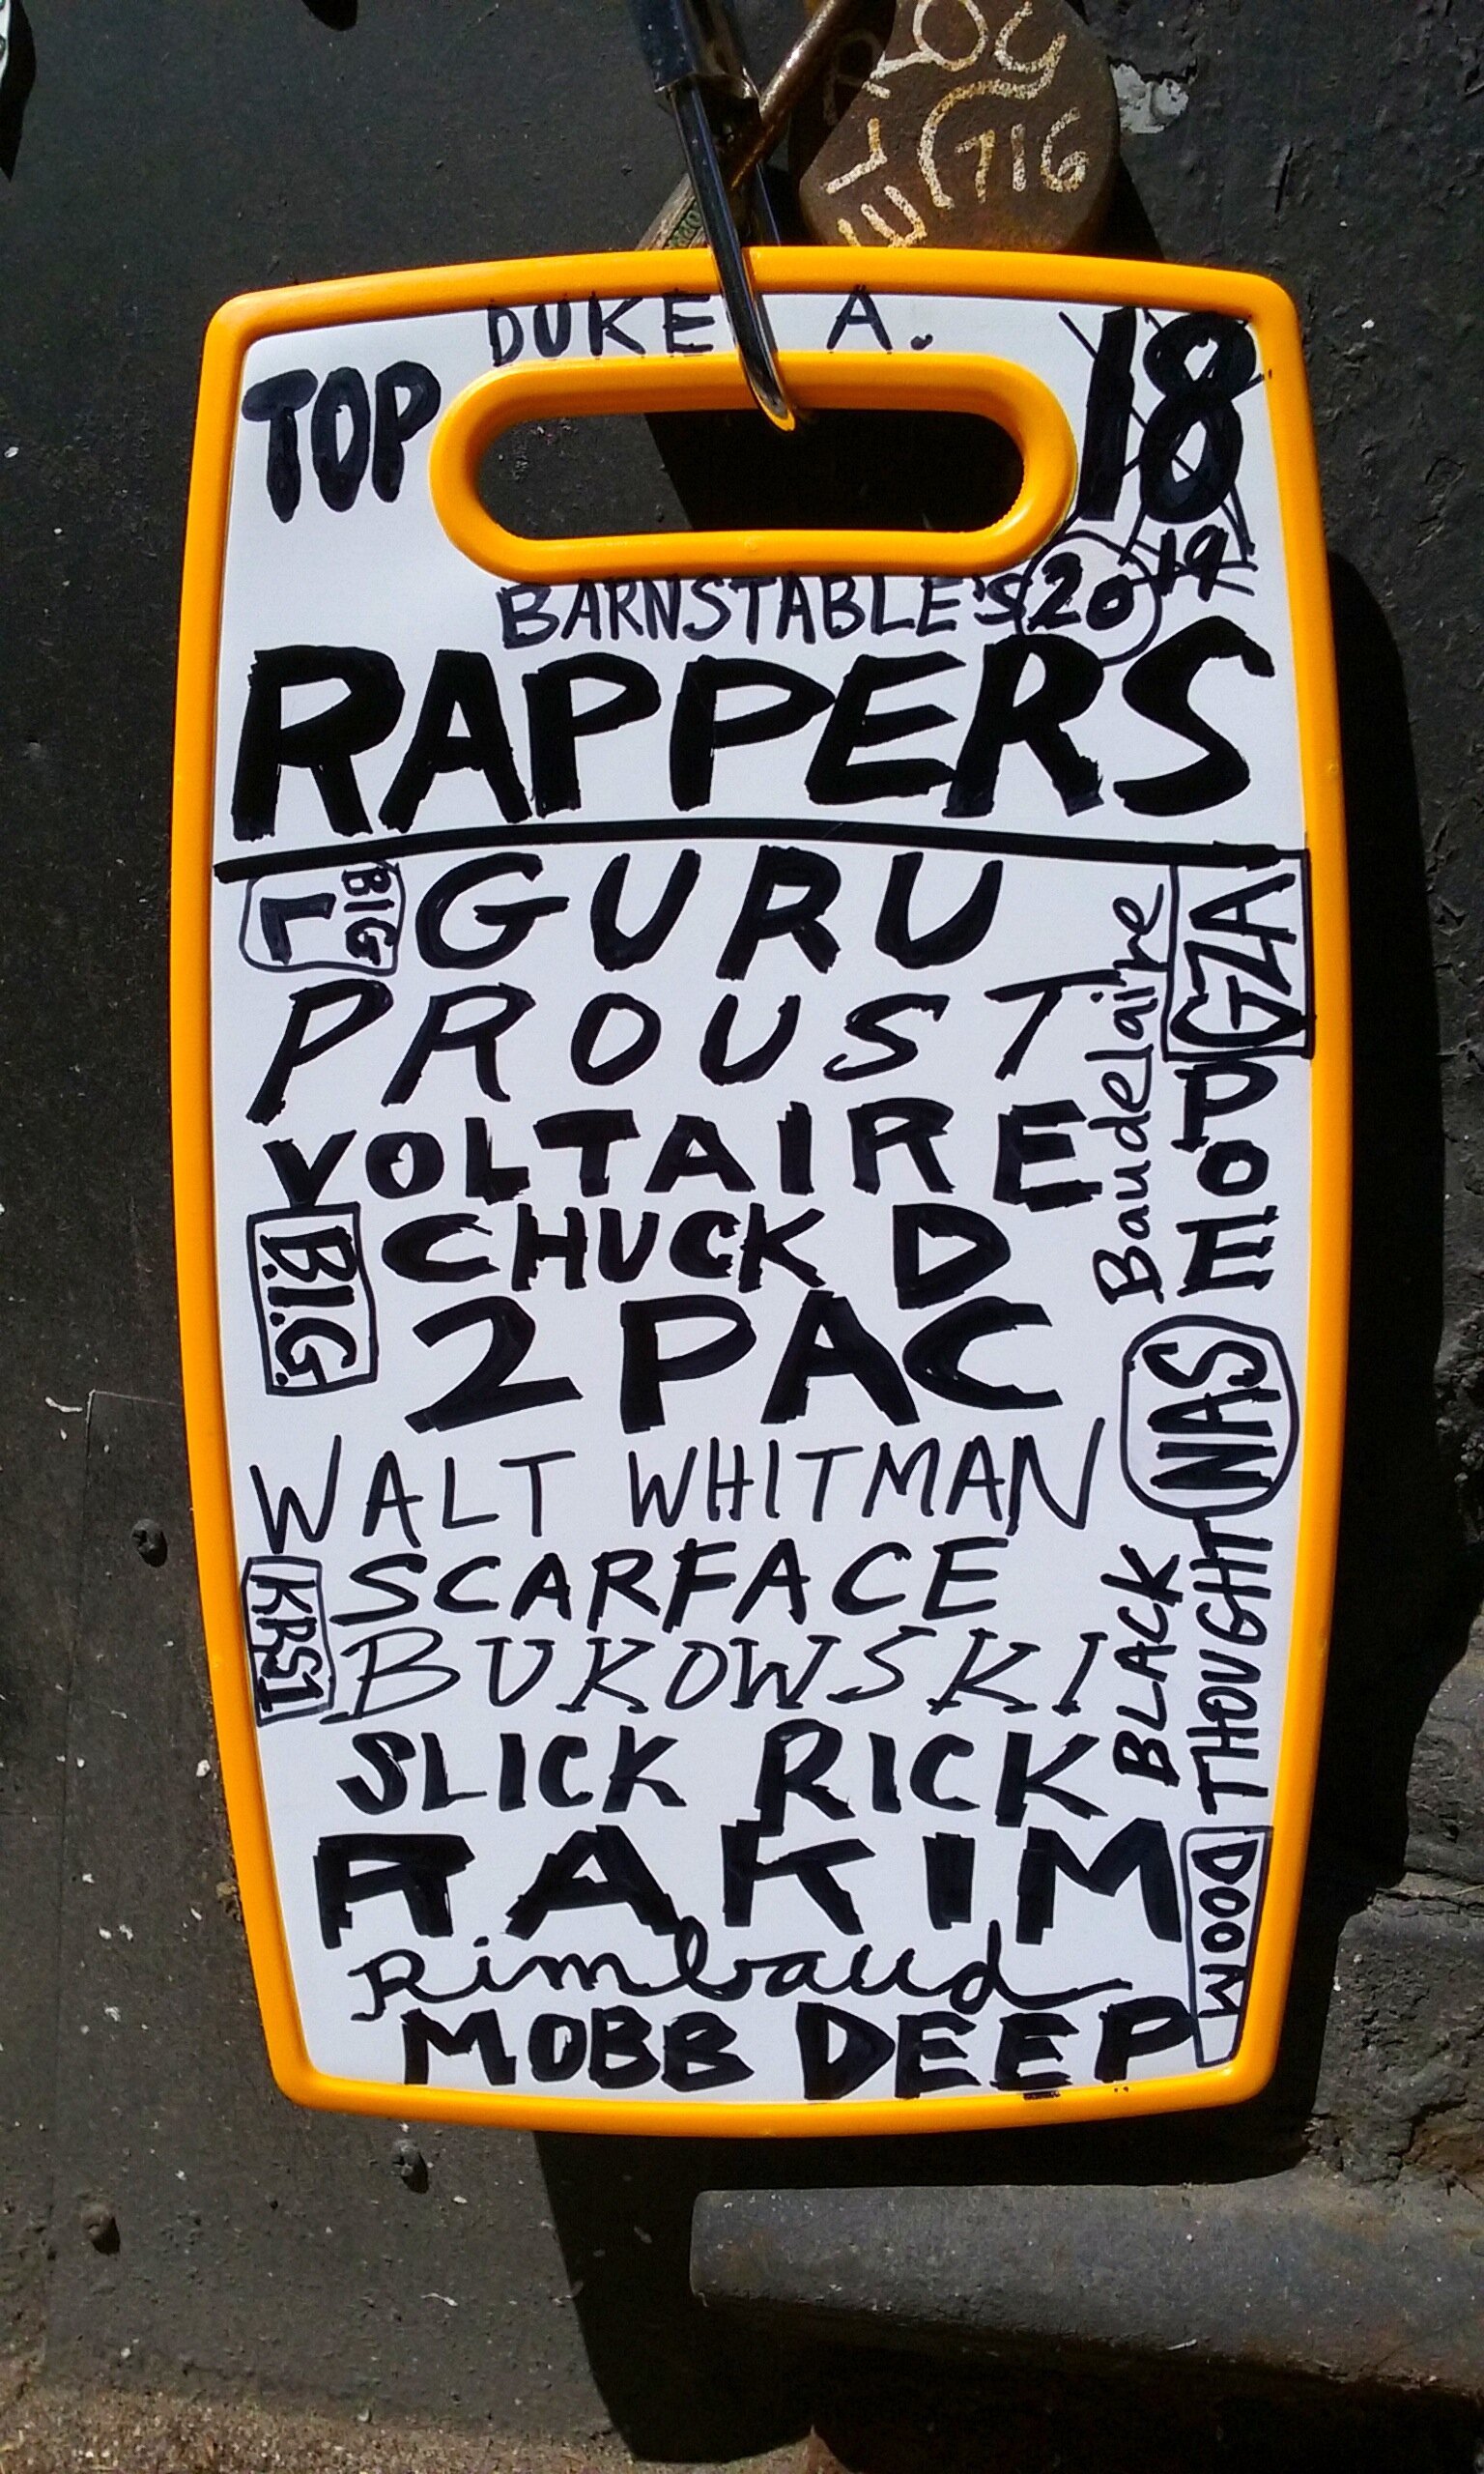 DUKE A.
TOP 18
BARNSTABLE'S 2019
RAPPERS
BIG L
GURU
PROUST
VOLTAIRE
B.I.G.
CHUCK D
2PAC
WALT WHITMAN
KRS1
SCARFACE
BUKOWSKI
SLICK RICK
RAKIM
Rimbaud
MOBB DEEP
GZA
Baudelaire
POE
NAS
BLACK
THOUGHT
DOOM
716